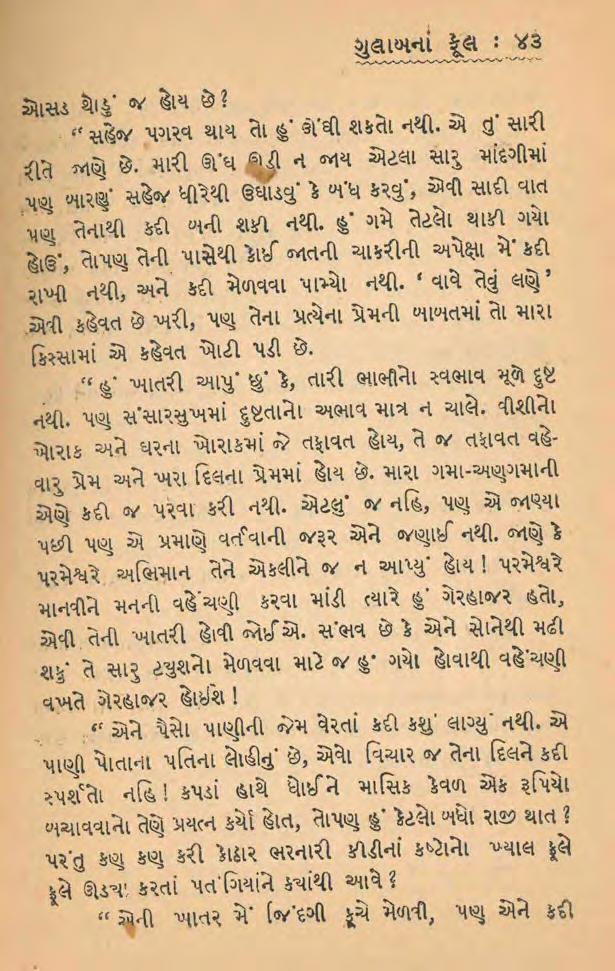 ગુલાબનાં ફૂલ : ૪૩
ઓસડ થોડું જ હોય છે?
“ સહેજ પગરવ થાય તો હું ઊંઘી શકતો નથી. એ તું સારી
રીતે જાણે છે. મારી ઊંઘ ઊડી ન જાય એટલા સારુ માંદગીમાં
પણ બારણું સહેજ ધીરેથી ઉઘાડવું કે બંધ કરવું, એવી સાદી વાત
પણ તેનાથી કદી બની શકી નથી. હું ગમે તેટલો થાકી ગયો
હોઉં, તોપણ તેની પાસેથી કોઈ જાતની ચાકરીની અપેક્ષા મેં કદી
રાખી નથી, અને કદી મેળવવા પામ્યો નથી. ‘ વાવે તેવું લણે ’
એવી કહેવત છે ખરી, પણ તેના પ્રત્યેના પ્રેમની બાબતમાં તો મારા
કિસ્સામાં એ કહેવત ખોટી પડી છે.
“ હું ખાતરી આપું છું કે, તારી ભાભીનો સ્વભાવ મૂળે દુષ્ટ
નથી. પણ સંસારસુખમાં દુષ્ટતાનો અભાવ માત્ર ન ચાલે. વીશીનો
ખોરાક અને ઘરના ખોરાકમાં જે તફાવત હોય, તે જ તફાવત વહે-
વારુ પ્રેમ અને ખરા દિલના પ્રેમમાં હોય છે. મારા ગમા-અણગમાની
એણે કદી જ પરવા કરી નથી. એટલું જ નહિ, પણ એ જાણ્યા
પછી પણ એ પ્રમાણે વર્તવાની જરૂર એને જણાઈ નથી. જાણે કે
પરમેશ્વરે અભિમાન તેને એકલીને જ ન આપ્યું હોય ! પરમેશ્વરે
માનવીને મનની વહેંચણી કરવા માંડી ત્યારે હું ગેરહાજર હતો,
એવી તેની ખાતરી હોવી જોઈએ. સંભવ છે કે એને સોનેથી મઢી
શકું તે સારુ ટ્યુશનો મેળવવા માટે જ હું ગયો હોવાથી વહેંચણી
વખતે ગેરહાજર હોઈશ !
“ એને પૈસો પાણીની જેમ વેરતાં કદી કશું લાગ્યું નથી. એ
પાણી પોતાના પતિના લોહીનું છે, એવો વિચાર જ તેના દિલને કદી
સ્પર્શતો નહિ ! કપડાં હાથે ધોઈને માસિક કેવળ એક રૂપિયો
બચાવવાનો તેણે પ્રયત્ન કર્યો હોત, તોપણ હું કેટલો બધો રાજી થાત ?
પરંતુ કણ કણ કરી કોઠાર ભરનારી કીડીનાં કષ્ટોનો ખ્યાલ ફૂલે
ફૂલે ઊડ્યા કરતાં પતંગિયાંને ક્યાંથી આવે ?
“ એની ખાતર મેં જિંદગી કૂચે મેળવી, પણ એને કદી